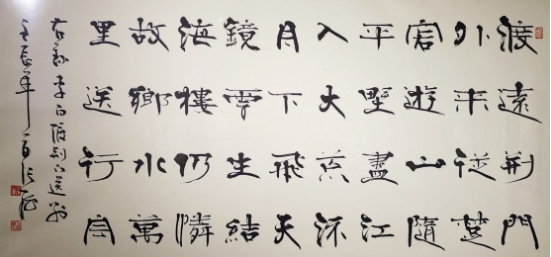 渡遠荆門
外来從楚
國遊山隨
平野盡江
入大荒流
月下飛天
鏡雲生結
海樓仍憐
故鄉水萬
里送行舟
右録李白渡荆门送别
壬辰年